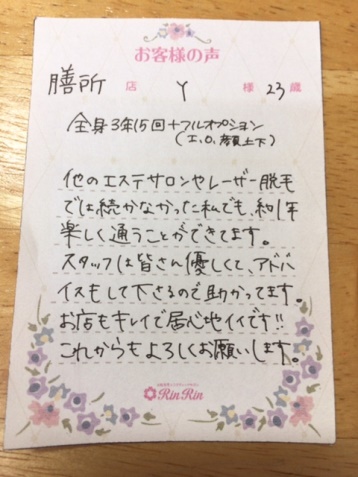 お客様の声
膳所 店 Y 様 23 歳
全身3年15回+フルオプション
(エ、O、襟足上下)
他のエステサロンやレーザー脱毛
では続かなかった私でも、約1年
楽しく通うことができてます。
スタッフは皆さん優しくて、アドバ
イスもして下さるので助かってます。
お店もキレイで居心地イイです!!
これからもよろしくお願いします。
RinRin